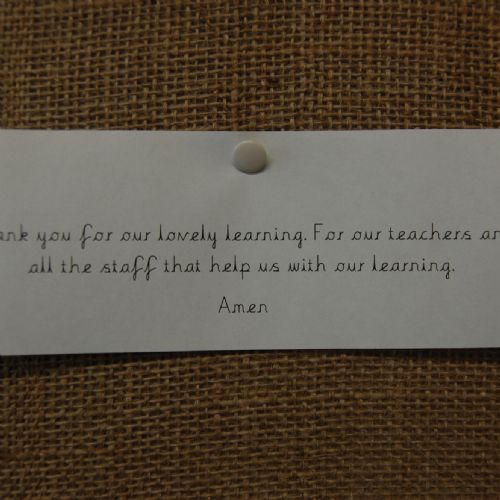 ank you for our lovely learning. For our teachers an
all the staff that help us with our learning.
Amen